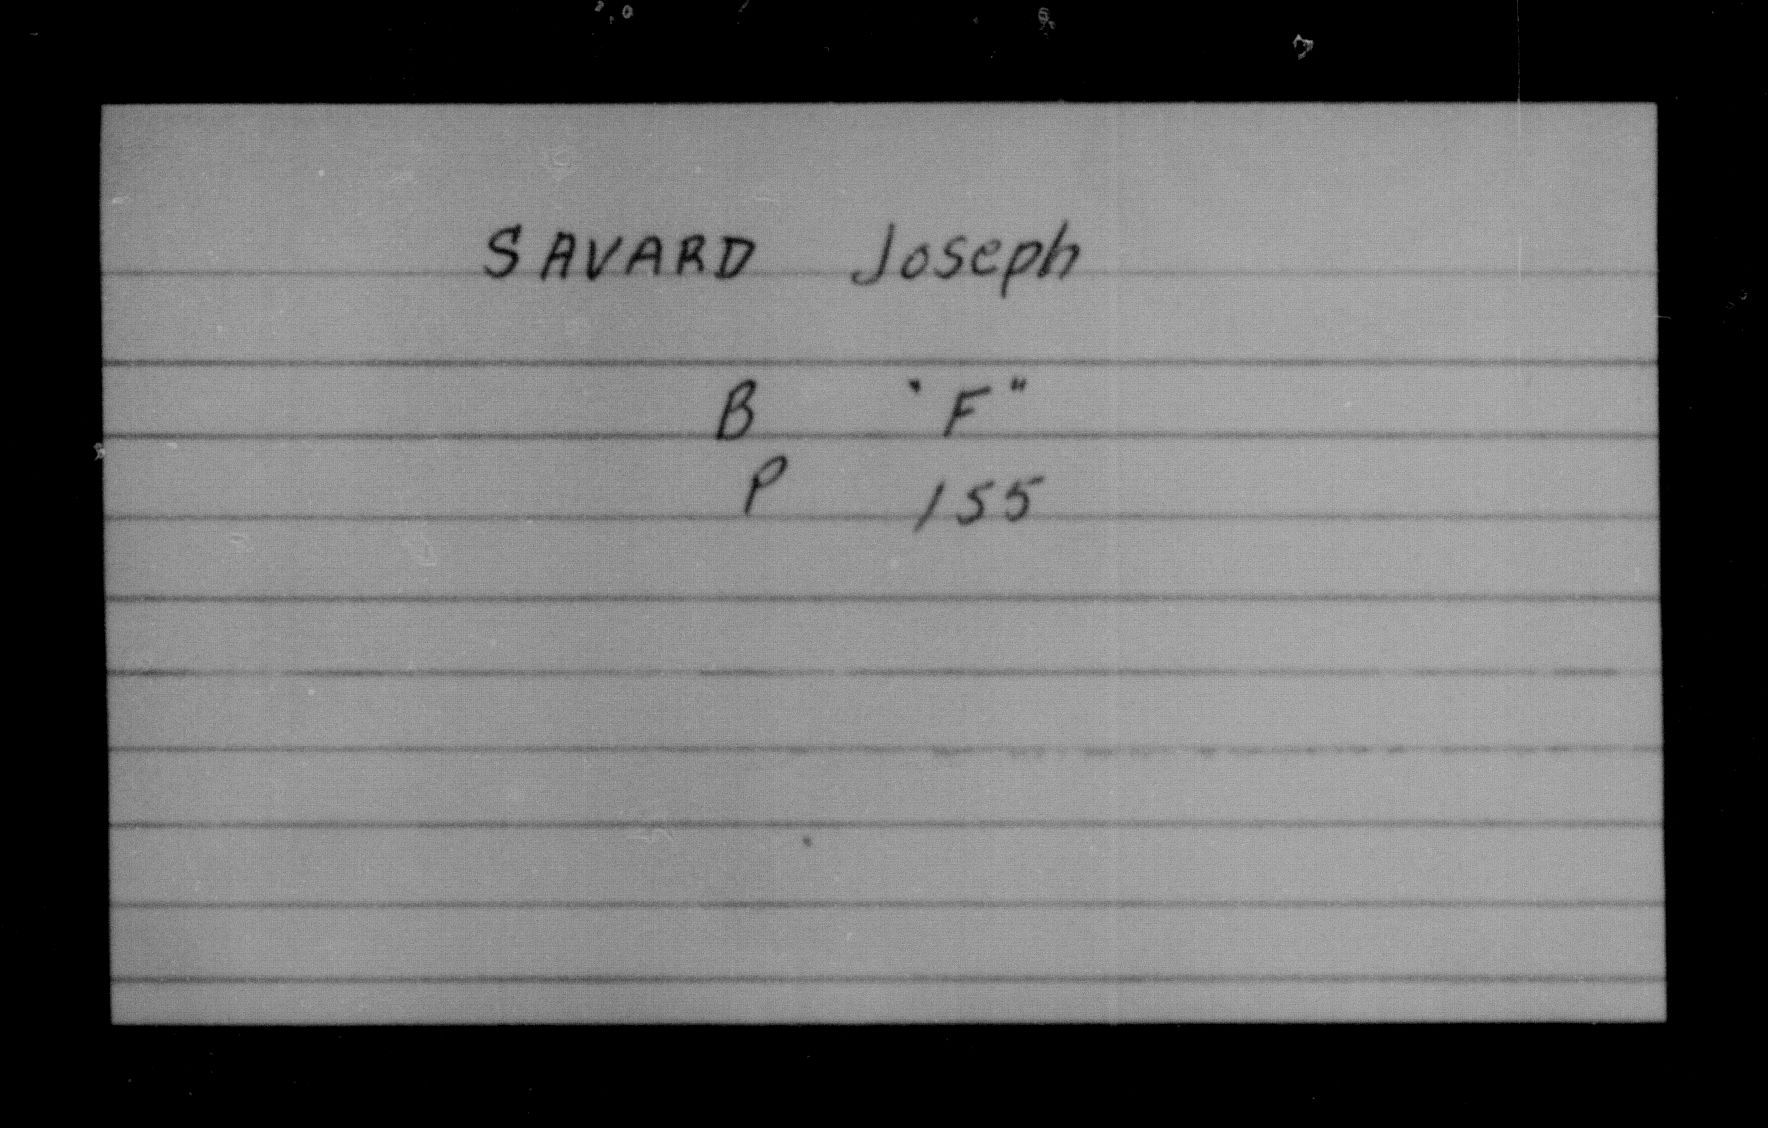 SAVARD Joseph
B "F"
P 155